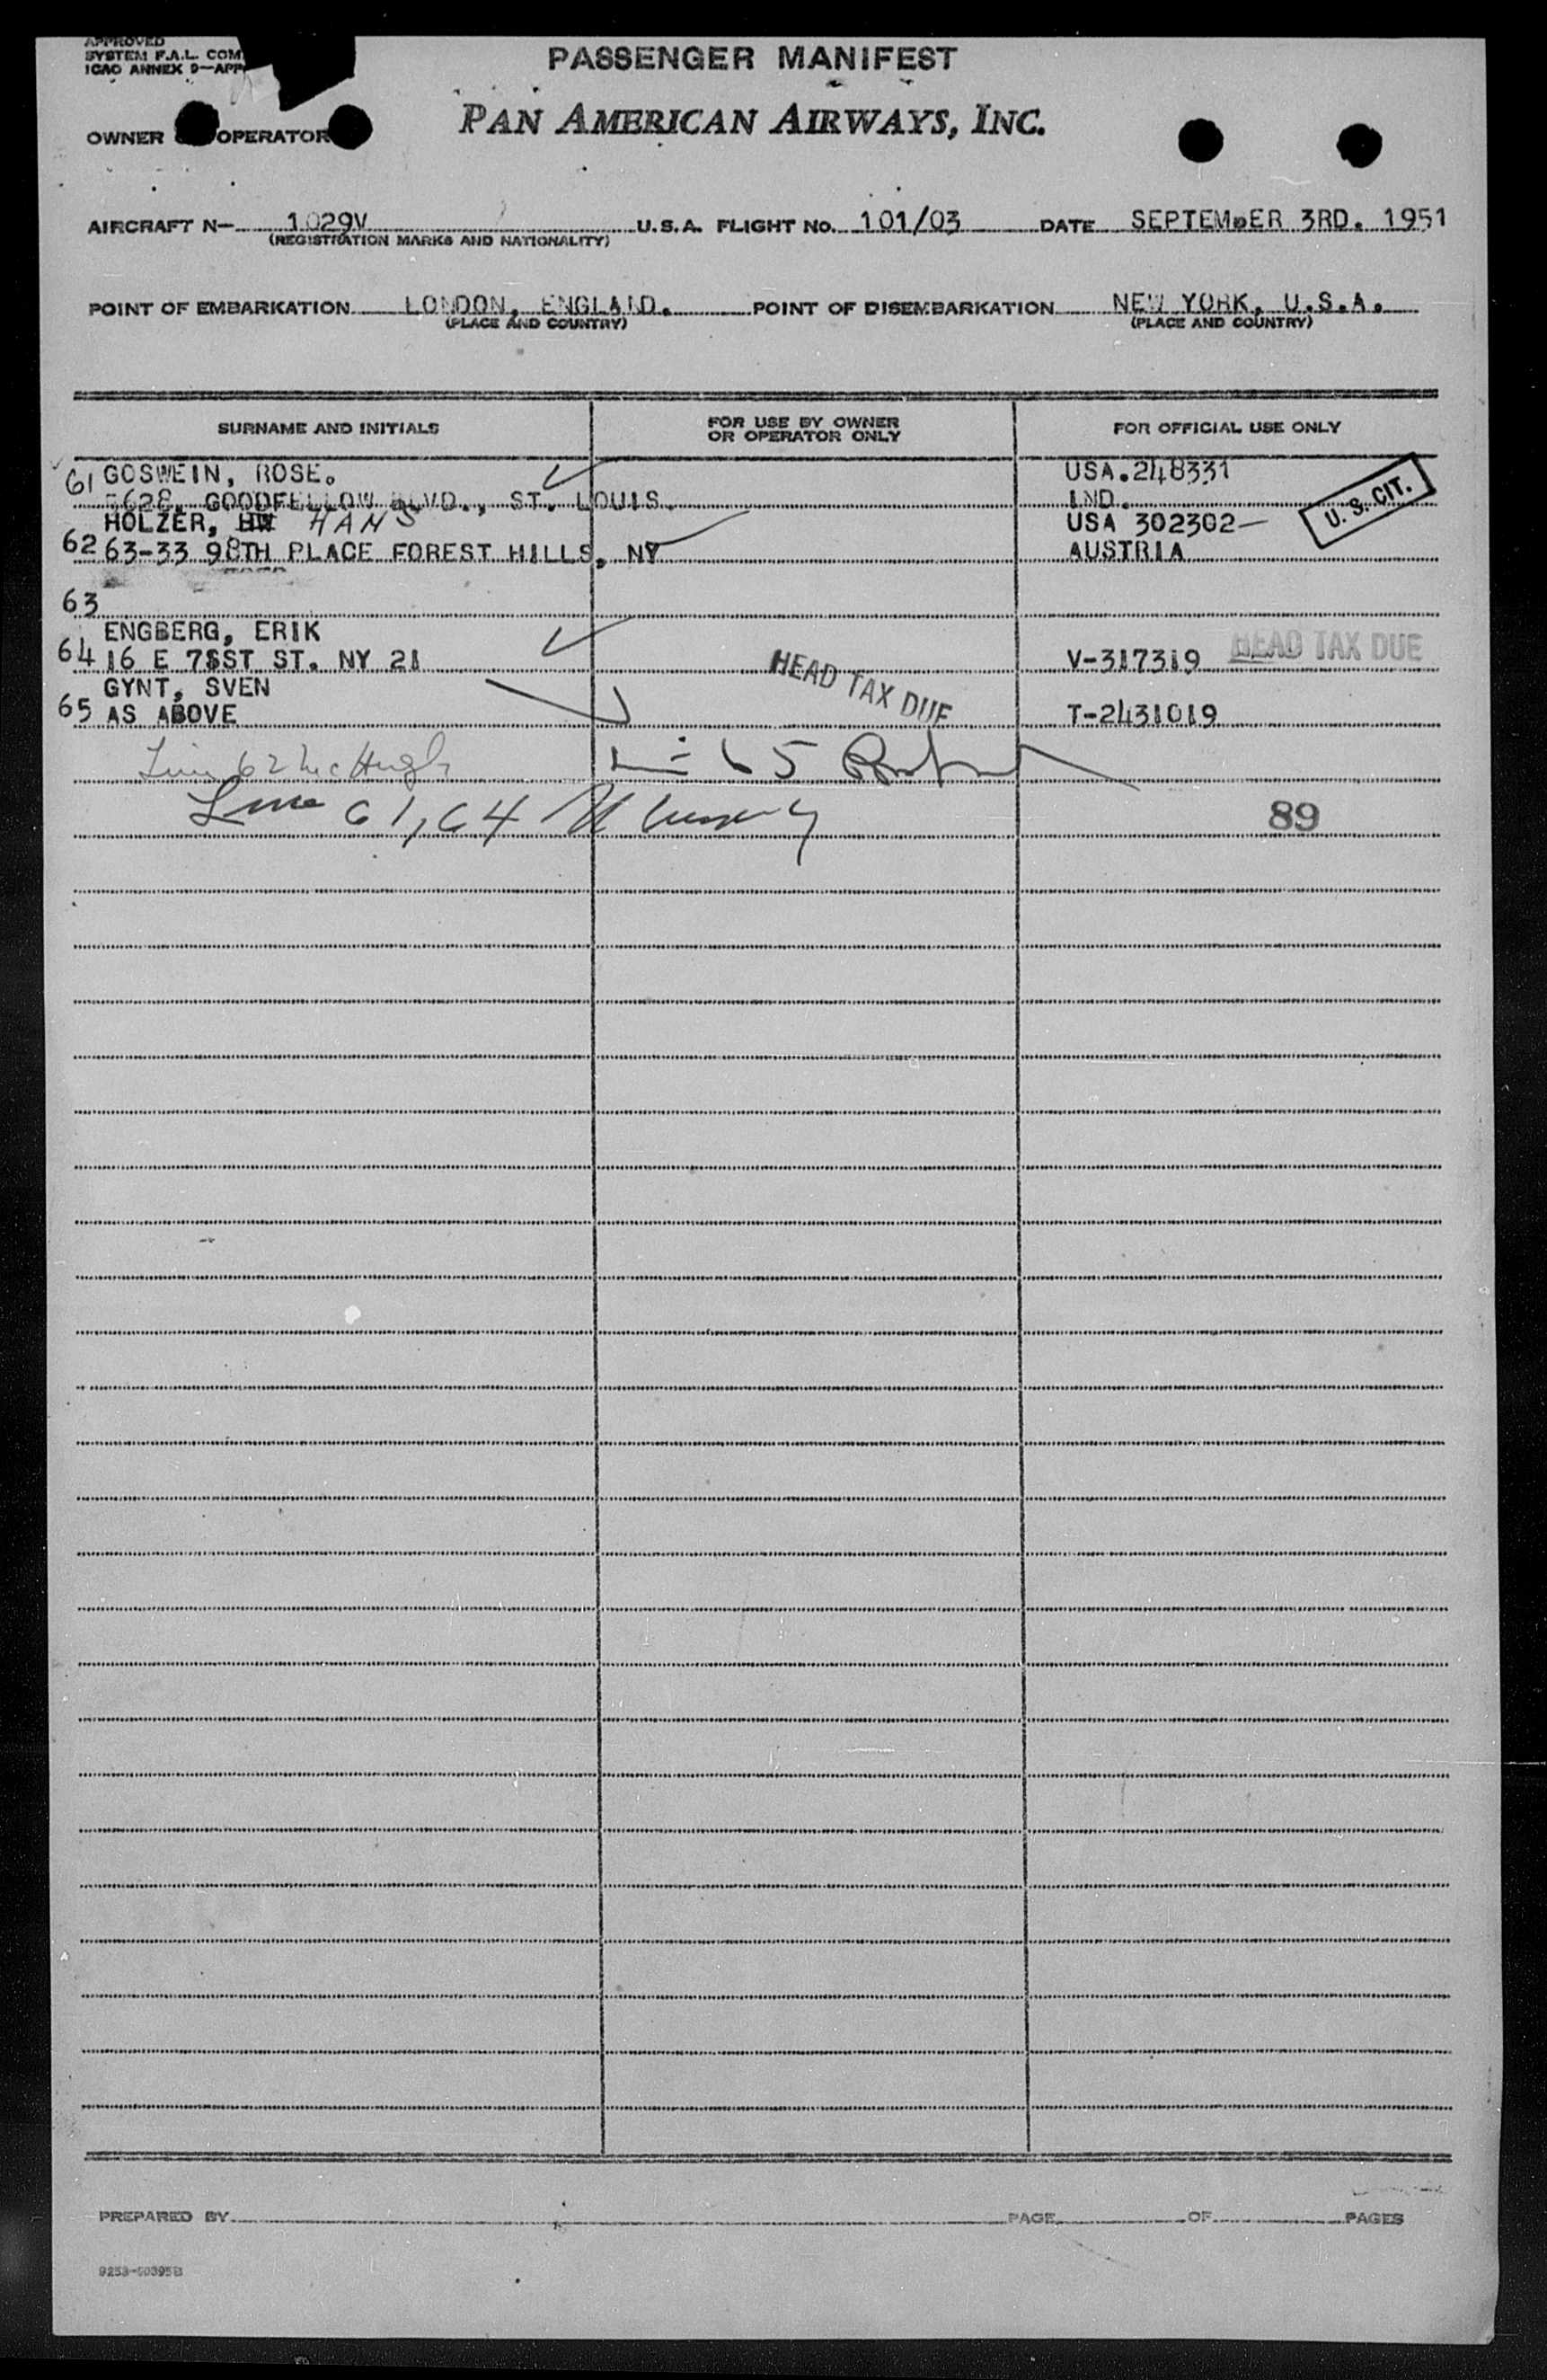 APPROVED
SYSTEM F.A.L. COM
ICAO ANNEX 9—APP
PASSENGER MANIFEST
OWNER OPERATOR
PAN AMERICAN AIRWAYS, INC.
AIRCRAFT N— 1029V U.S.A. FLIGHT NO. 101/03 DATE SEPTEMBER 3RD. 1951
(REGISTRATION MARKS AND NATIONALITY)
POINT OF EMBARKATION LONDON, ENGLAND. POINT OF DISEMBARKATION NEW YORK, U.S.A.
(PLACE AND COUNTRY) (PLACE AND COUNTRY)
SURNAME AND INITIALS FOR USE BY OWNER OR OPERATOR ONLY FOR OFFICIAL USE ONLY
61 GOSWEIN, ROSE. USA.248331
5628, GOODFELLOW BLVD., ST. LOUIS. IND. U. S. CIT.
HOLZER, HANS USA 302302—
62 63-33 98TH PLACE FOREST HILLS, NY AUSTRIA
63
ENGBERG, ERIK
64 16 E 7$ST ST. NY 21 V-317319 HEAD TAX DUE
GYNT, SVEN HEAD TAX DUE
65 AS ABOVE T-2431019
Line 62 McHugh 65
Line 61, 64
89
PREPARED BY PAGE OF PAGES